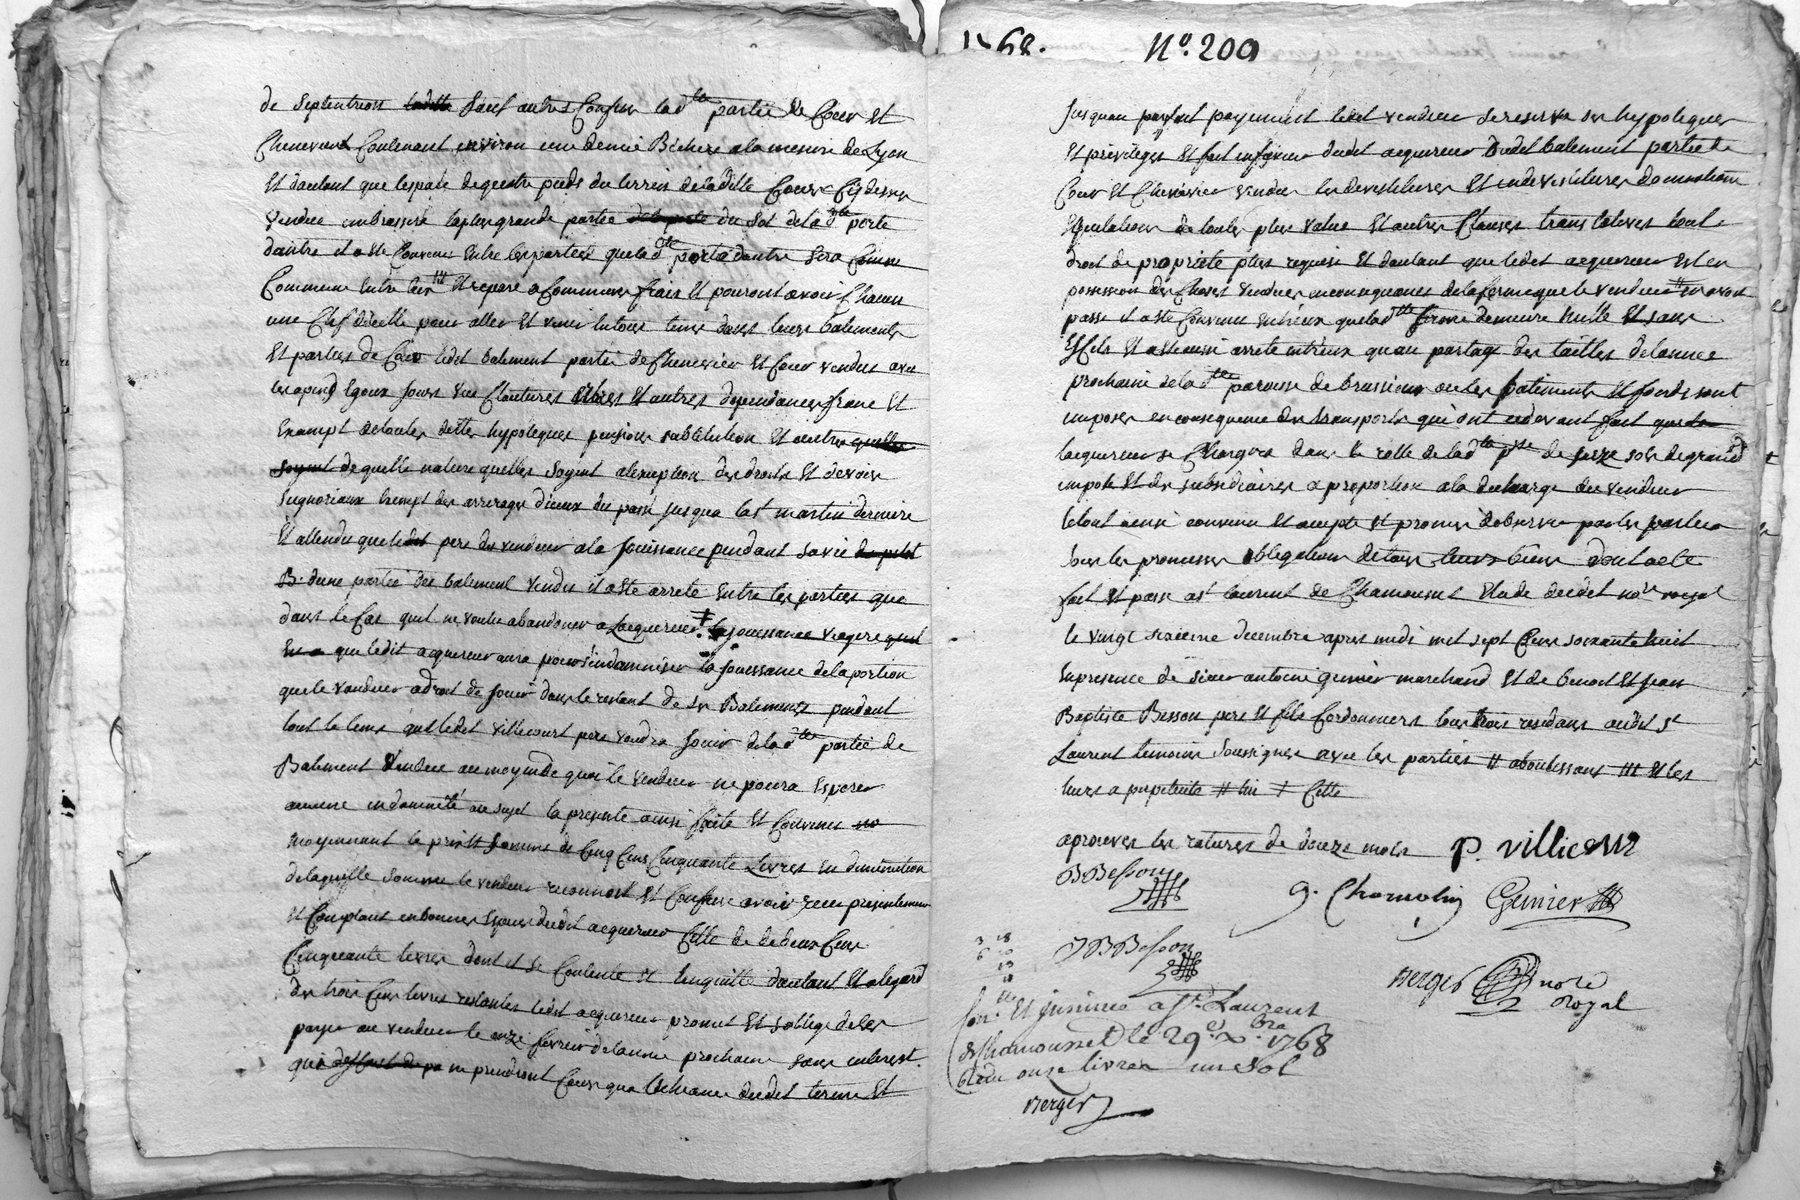 de septentrion laditte sauf autres Confins lad.tte partie de Cour Et
Chenevier Contenant environ une demie Bichere a la mesure de Lyon
Et d'autant que l'espace de quatre pieds du terrein de ladille Cour Cy dessus
vendue embrassera la plus grande partie de la porte du Sol de lad.tte porte
dautre il a été Convenu Entre les parties que lad.tte porte dantre sera Comme
Commune Entre lesd. Et reparé a Commun frais Et pouront avoir Chacun
une Clef d'icelle pour aller Et venir En tous tems dans leurs batiments
Et parties de Cour ledit batiment partie de Chenevier Et Cour vendus avec
Egoux Jours vue Cloutures Et autres dependances franc Et
Exempt de toutes dettes hypoteques pensions substitution Et autres quelles
soyent de quelle nature quelles soyent a l'exception des droits Et devoirs
seigneuriaux Exempt des arrerages d'iceux du passé jusqua la St martin derniere
Et attendu que ledit pere du vendeur a la jouissance pendant sa vie du petit
B. d'une partie du batiment vendu il a été arreté Entre les parties que
dans le Cas quil ne voulu abandonner a Lacquereur la jouissance viagere quil
En a que ledit acquereur aura pour s'indamniser la jouissance de la portion
que le vandeur a droit de jouir dans le restant de ses Batiments pendant
tout le tems que ledit villecourt pere voudra jouir de lad.tte partie de
Batiment Vendue au moyende quoi le vendeur ne poura Esperer
aucune indamnité au sujet la presente ainsi faite Et Convenue
moyennant le prix Et somme de Cinq Cens Cinquante Livres En diminution
de laquelle somme le vendeur reconnoit Et Confesse avoir recu presentement
Et Comptant en bonnes Especes dudit acquereur Celle de deux Cens
Cinquante livres dont il se Contente Et l'enquitte d'autant Et a legard
des trois Cens livres restantes ledit acquereur promet Et s'oblige de les
payer au vendeur le onze fevrier de lannée prochaine sans interest
qui ne prendront Cours qua lecheance dudit terme Et
1768. N.o 200
Jusquau parfait payement ledit vendeur se reserve ses hypoteques
Et privileges Et fait en faveur dudit acquereur dudit batiment partie de
Cour Et Chenevier vendus les devestitures Et investitures
stipulations de toutes plus value Et autres Clauses translatives tout
droit de proprieté plus requise Et d'autant que ledit acquereur Est en
possession des Choses vendues en consequence de la ferme que le vendeur En avoit
passé il a été Convenu entr'eux que lad.tte ferme demeure Nulle Et sans
Effets Et a été aussi arreté entr'eux quau partage des tailles de lannée
prochaine de lad.tte paroisse de brussieux ou les batiments Et fonds sont
imposés en consequence des transports qui ont ci devant fait
lacquereur se Chargera dans le rolle de lad.tte p.sse de seize sols de grand
impots Et des subsidiaires a proportion a la decharge du vendeur
Le tout ainsi convenu Et accepté Et promis d'observer par les parties
sous les promesses obligations de tous leurs biens dont acte
fait Et passé a St laurent de Chamousset Etude dudit no.re royal
le vingt sixieme decembre apres midi mil sept Cens soixante huit
En presence de sieur antoine gunier marchand Et de benoit Et Jean
Baptiste Besson pere Et fils Cordonniers tous trois residans audit St
Laurent temoins soussignes avec les parties # aboutissans ## Et les
leurs a perpetuité # lui + Cette
aprouvés les ratures de douze mots P. villicour
B Besson
g. Chamolin Gunier
J B Besson
Berger no.re royal
Con.le Et insinué a St Laurent
de Chamousset le 29.e x.bre 1768
Recu onze livres un sol
Berger